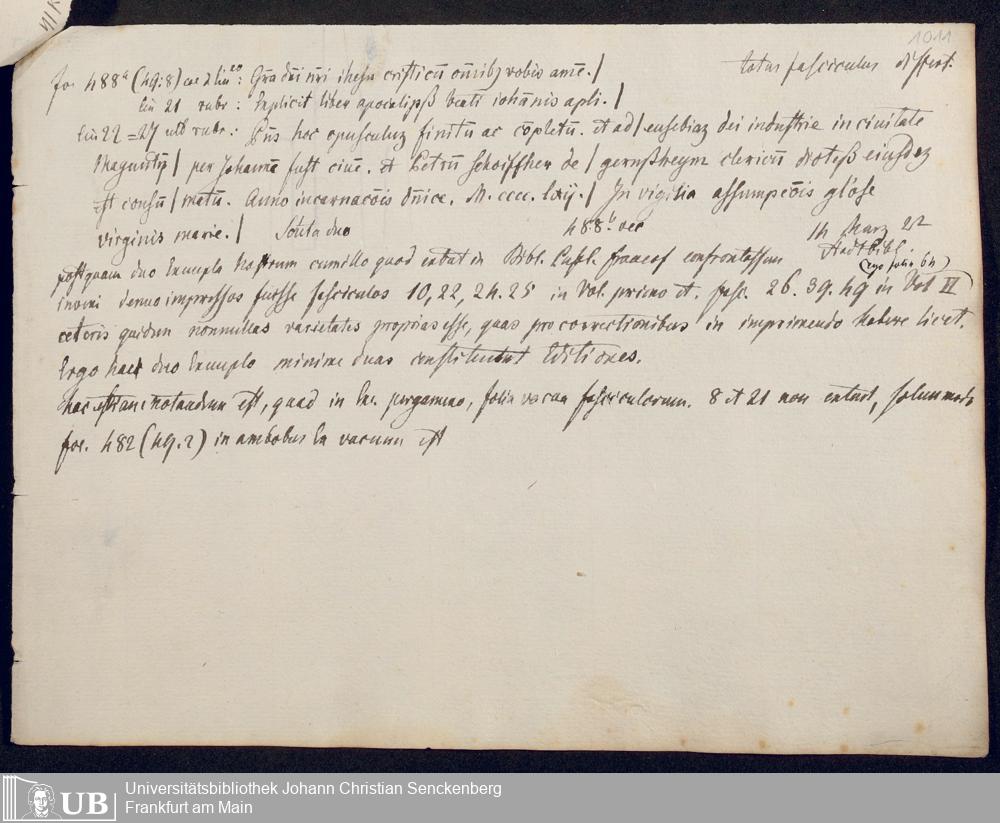 1011
fol 488a (49:8) col 2 lin 20: Gra dni nri ihesu cristi cu omibz vobis ame. / totus fasciculus differt.
lin 21 rubr: Explicit liber apocalipß beati iohanis apli. /
lin 22 = 27 ulb rubr.: Pns hoc opusculuz finitu ac copletu. et ad / eusebiaz dei industrie in ciuitate
Maguntij / per Johanne fust ciue. et Petru Schoiffher de / gernßheym clericu dioteß eiusdez
est consu / matu. Anno incarnacois dnice. M. cccc. lxij. / In vigilia assumpcois glose
virginis marie. / Scuta duo 488b vac 14 Marz 22
Stadtbibl.
postquam duo Exempla Nostrum cum illo quod extat in Bibl. Publ. Francof confrontassem
(ego folio 64)
inveni denuo impressos fuisse fasciculos 10, 22, 24. 25 in Vol. primo et. fasc. 26. 39. 49 in Vol II
ceteris quidem nonnullas varietates proprias esse, quas pro correctionibus in imprimendo habere licet.
Ergo haec duo Exempla minime duas constituunt Editiones.
hac etiam notandum est, quod in Ex. pergameno, folia vacua fasciculorum. 8 et 21 non extant, solummodo
fol. 482 (49.2) in ambobus Ex vacuum est
UB
Universitätsbibliothek Johann Christian Senckenberg
Frankfurt am Main